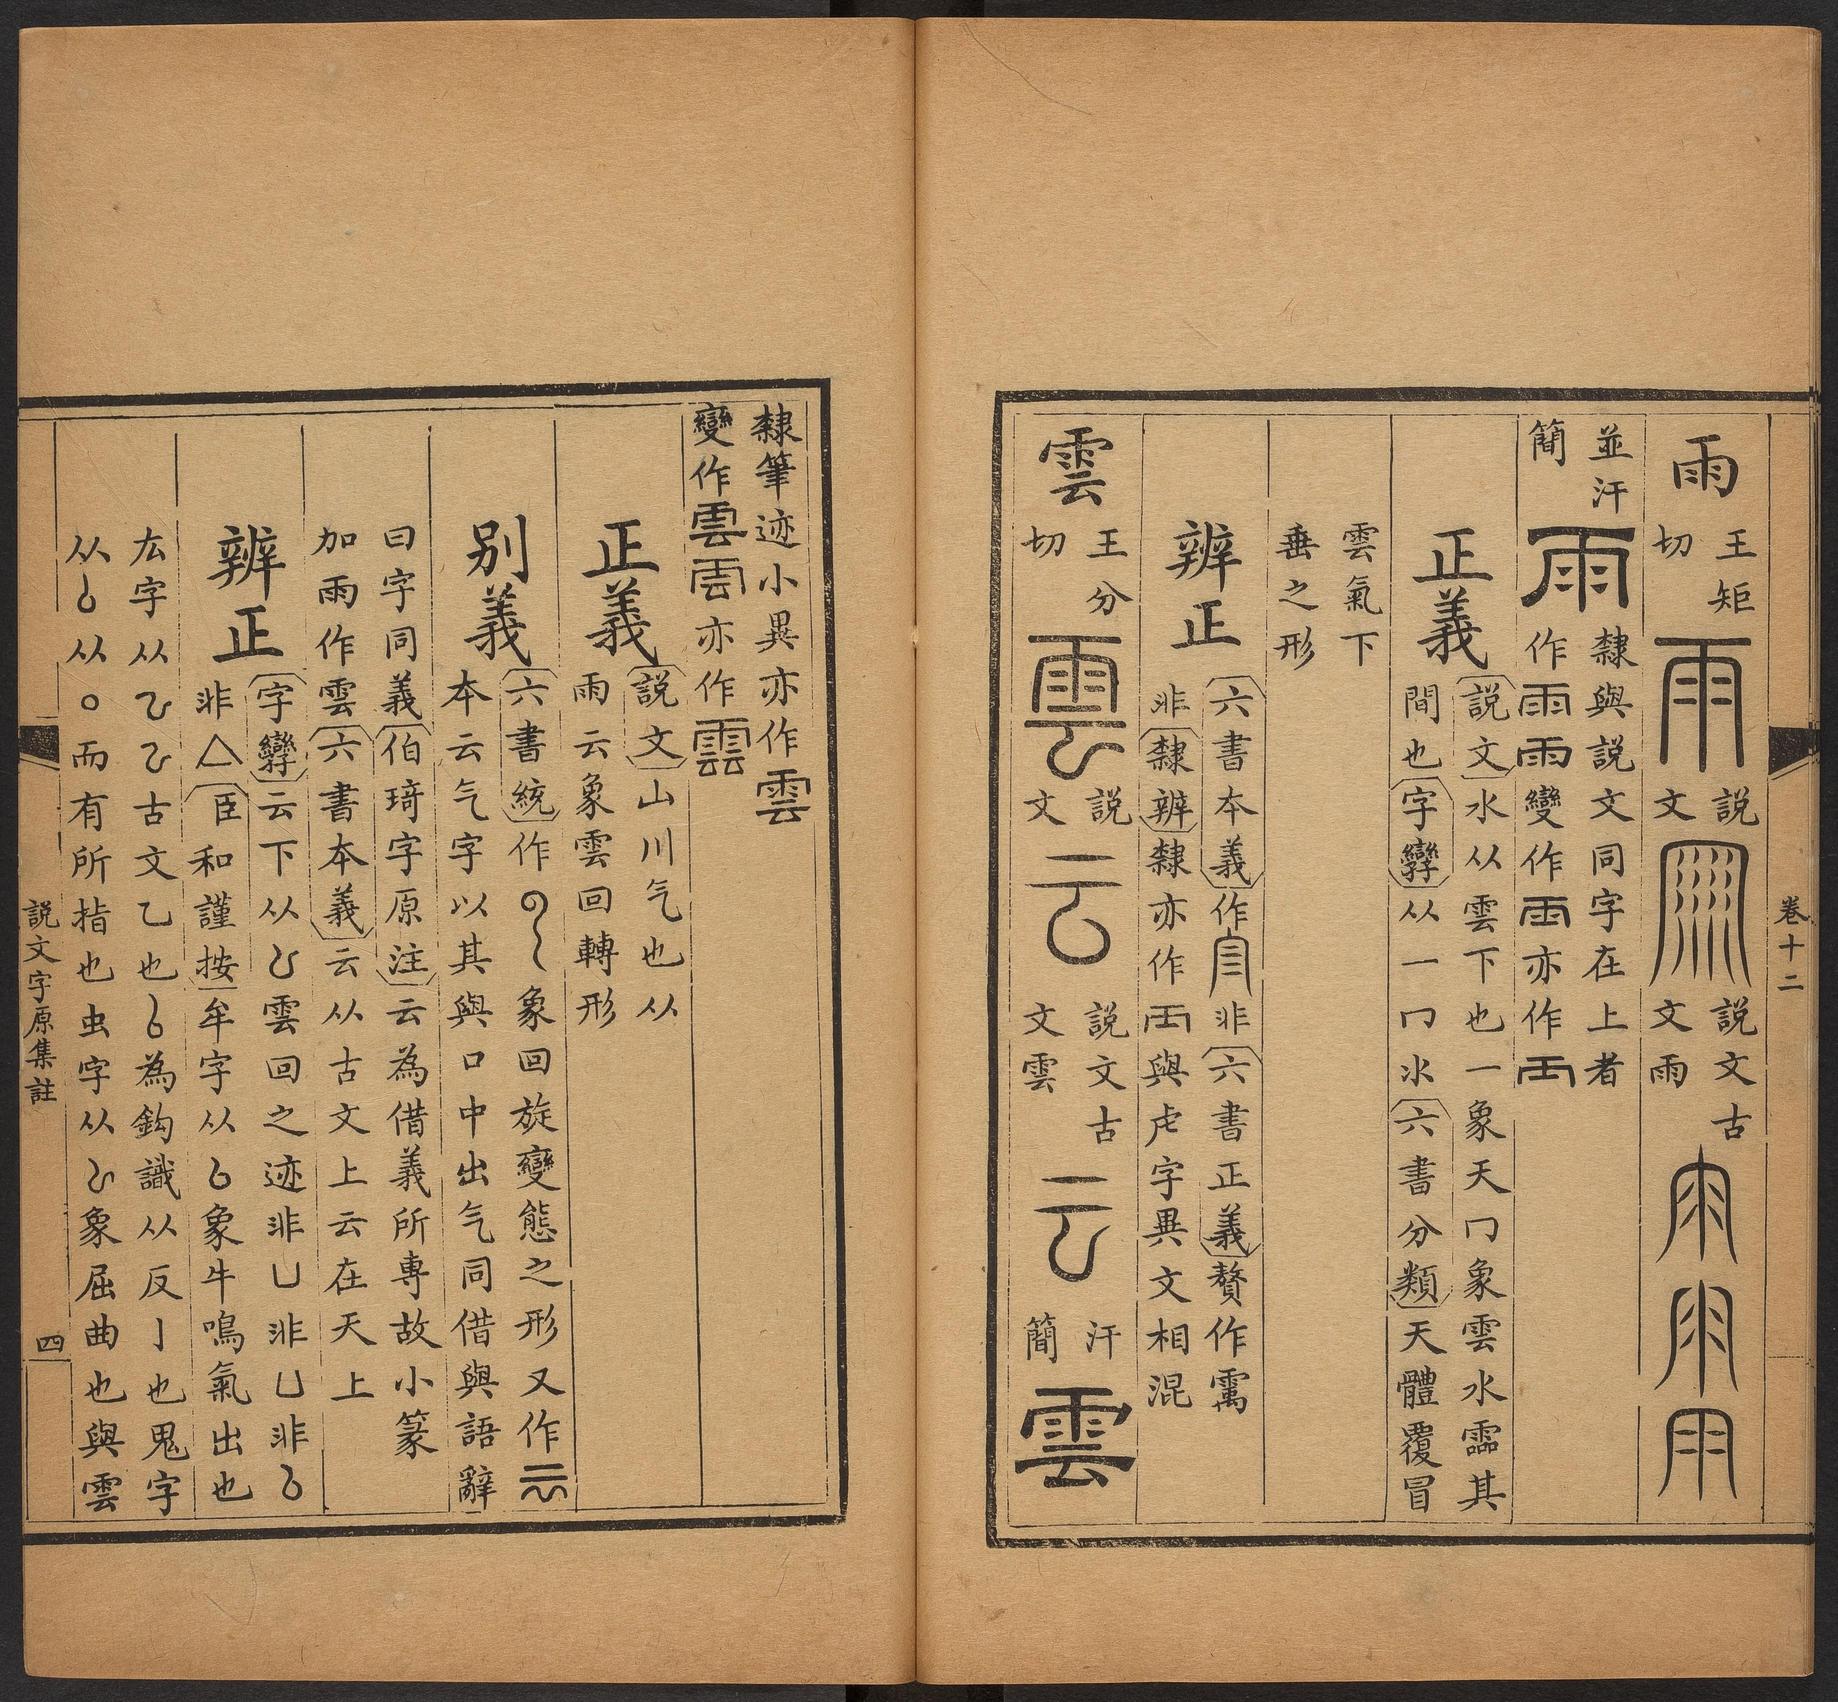 卷十二
雨 王矩切 雨 説文 説文古文雨
並汗簡 雨 隸與説文同字在上者作雨雨變作雨亦作
正義 説文水从雲下也一象天冂象雲水霝其間也字孿从一冂氺六書分類天體覆冒
雲氣下垂之形
辨正 六書本義作非六書正義贅作䨒非隸辨隸亦作與虍字異文相混
雲 王分切 雲 説文 云 説文古文雲 云 汗簡 雲
隸筆迹小異亦作雲變作雲雲亦作
正義 説文山川气也从雨云象雲回轉形
别義 六書統作象回旋變態之形又作本云气字以其與口中出气同借與語辭
曰字同義伯琦字原注云為借義所專故小篆加雨作雲六書本義云从古文上云在天上
辨正 字孿云下从雲回之迹非凵非凵非非△臣和謹按牟字从象牛鳴氣出也
厷字从古文乙也為鈎識从反亅也鬼字从从而有所指也虫字从象屈曲也與雲
説文字原集註
四